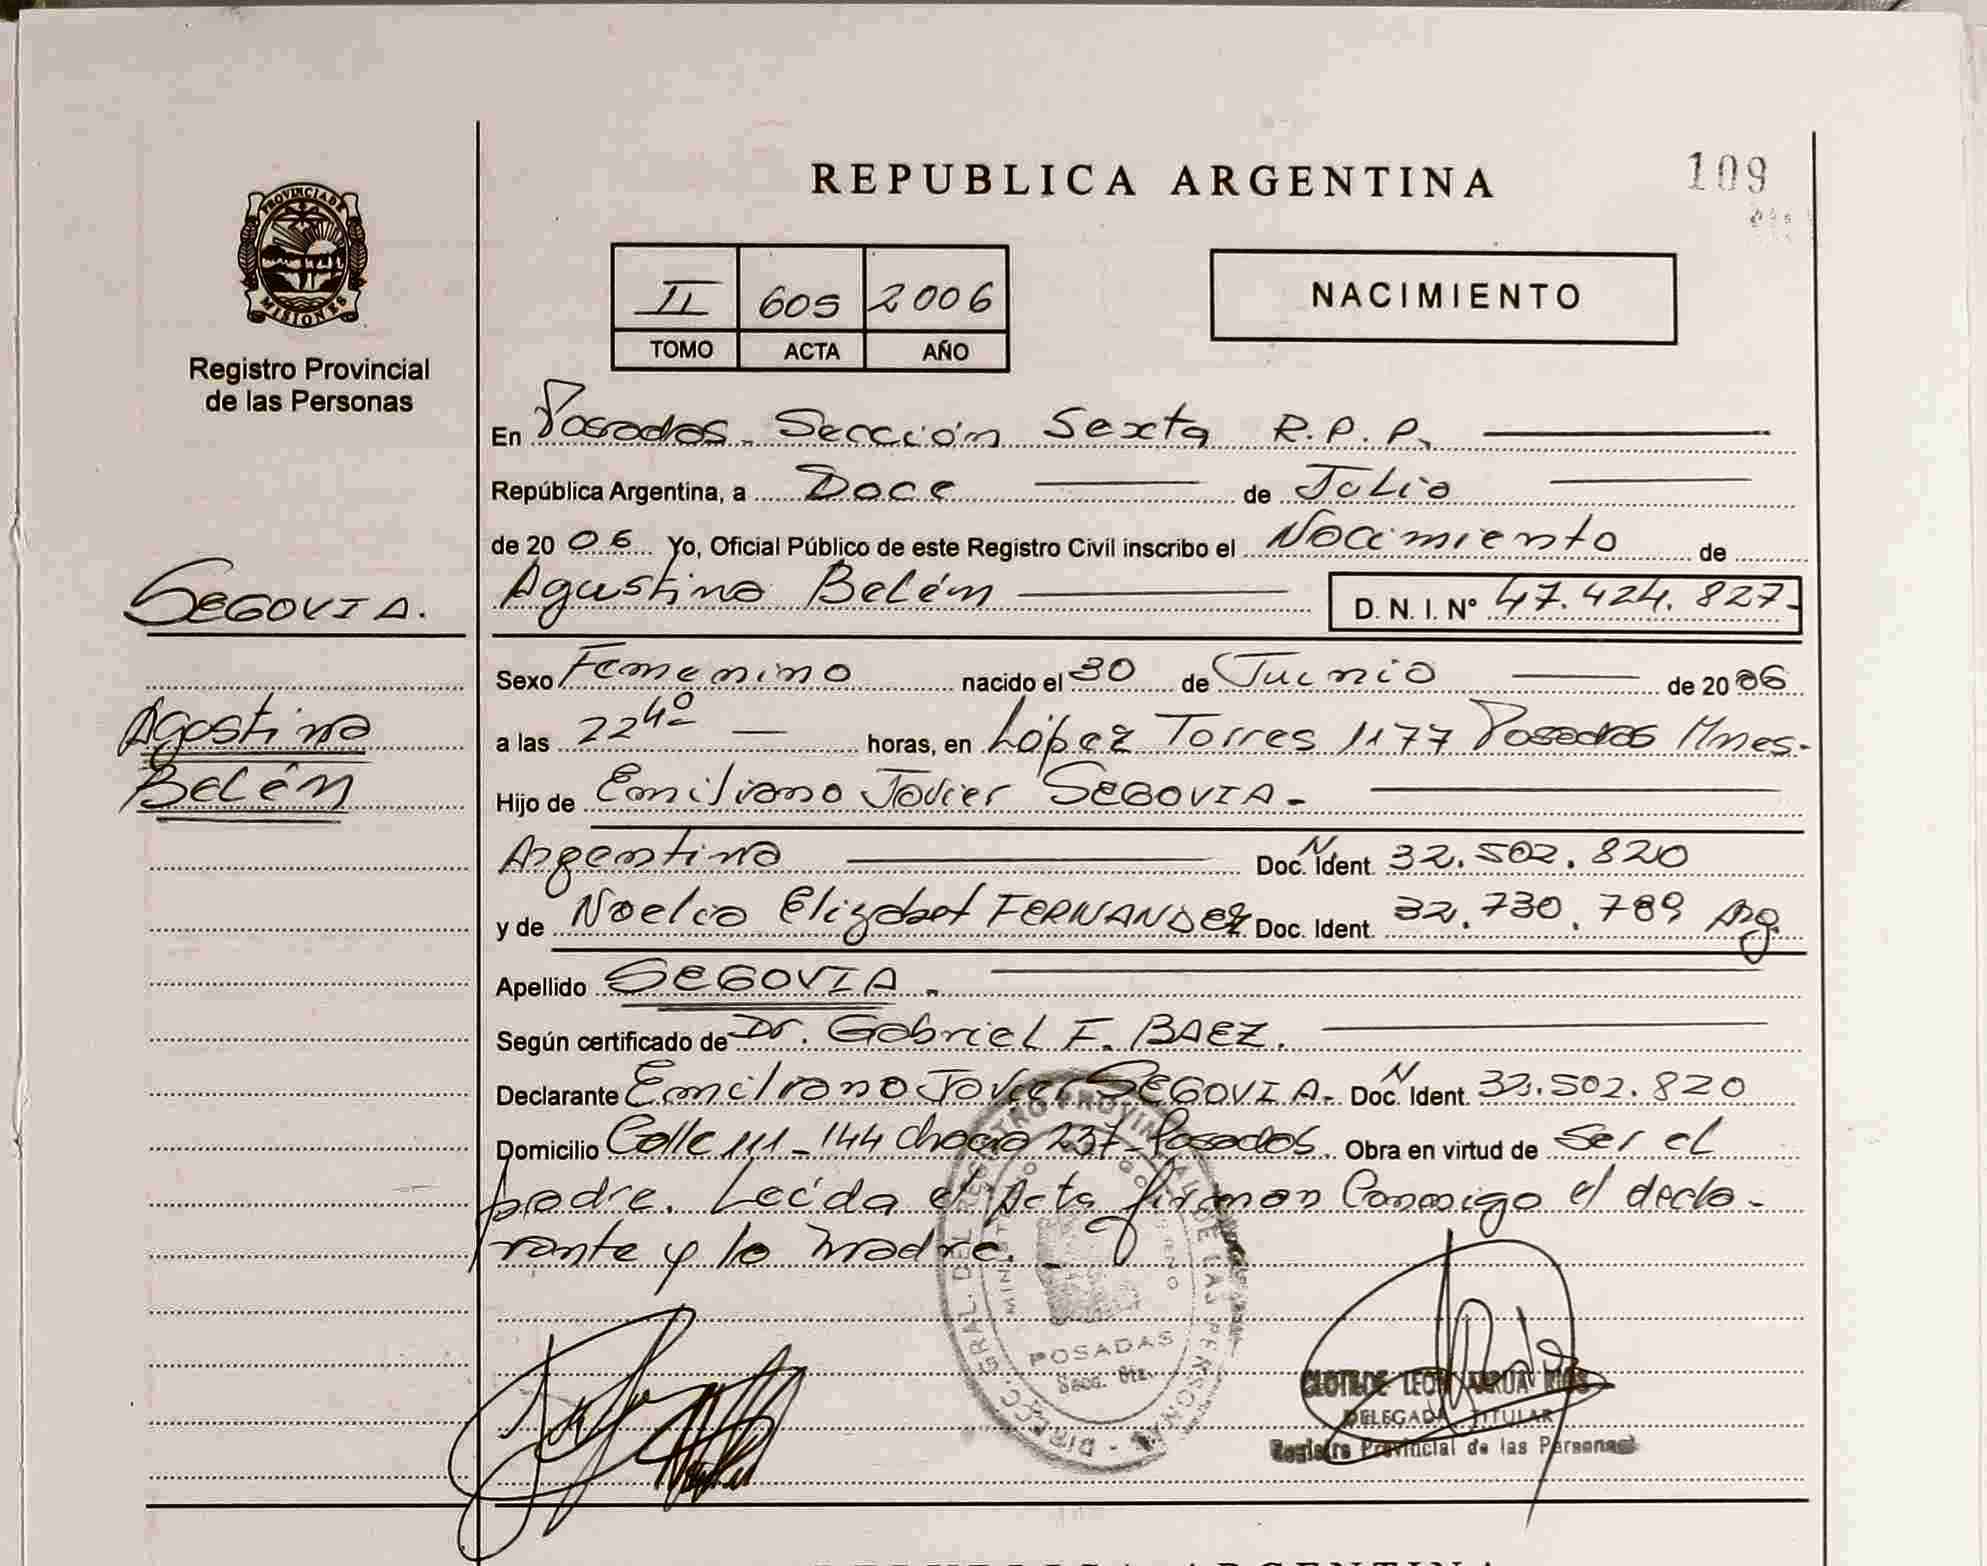 REPUBLICA ARGENTINA
109
PROVINCIA DE
MISIONES
Registro Provincial
de las Personas
II 605 2006
TOMO ACTA AÑO
NACIMIENTO
En Posadas Sección Sexta R.P.P.
República Argentina, a Doce de Julio
de 2006 Yo, Oficial Público de este Registro Civil inscribo el Nacimiento de
SEGOVIA.
Agustina Belém D. N. I. Nº 47.424.827-
Sexo Femenino nacido el 30 de Junio de 2006
Agostina
Belém
a las 22 40 horas, en López Torres 1177 Posadas Mnes-
Hijo de Emiliano Javier SEGOVIA-
Argentina Doc. N Ident. 32.502.820
y de Noelia Elizabet FERNANDEZ Doc. Ident. 32.730.789 Arg
Apellido SEGOVIA.
Según certificado de Dr. Gabriel F. BAEZ.
Declarante Emiliano Javier SEGOVIA. Doc. N Ident. 32.502.820
Domicilio Calle 111-144 chacra 237-Posadas. Obra en virtud de ser el
padre. Leída el Acta firman conmigo el decla-
rante y la madre.
DIRECC. GRAL. DEL REGISTRO PROVINCIAL DE LAS PERSONAS
MINISTERIO GOBIERNO
POSADAS
Secc. 6ta.
CLOTILDE
DELEGADA TITULAR
Registro Provincial de las Personas
REPUBLICA ARGENTINA